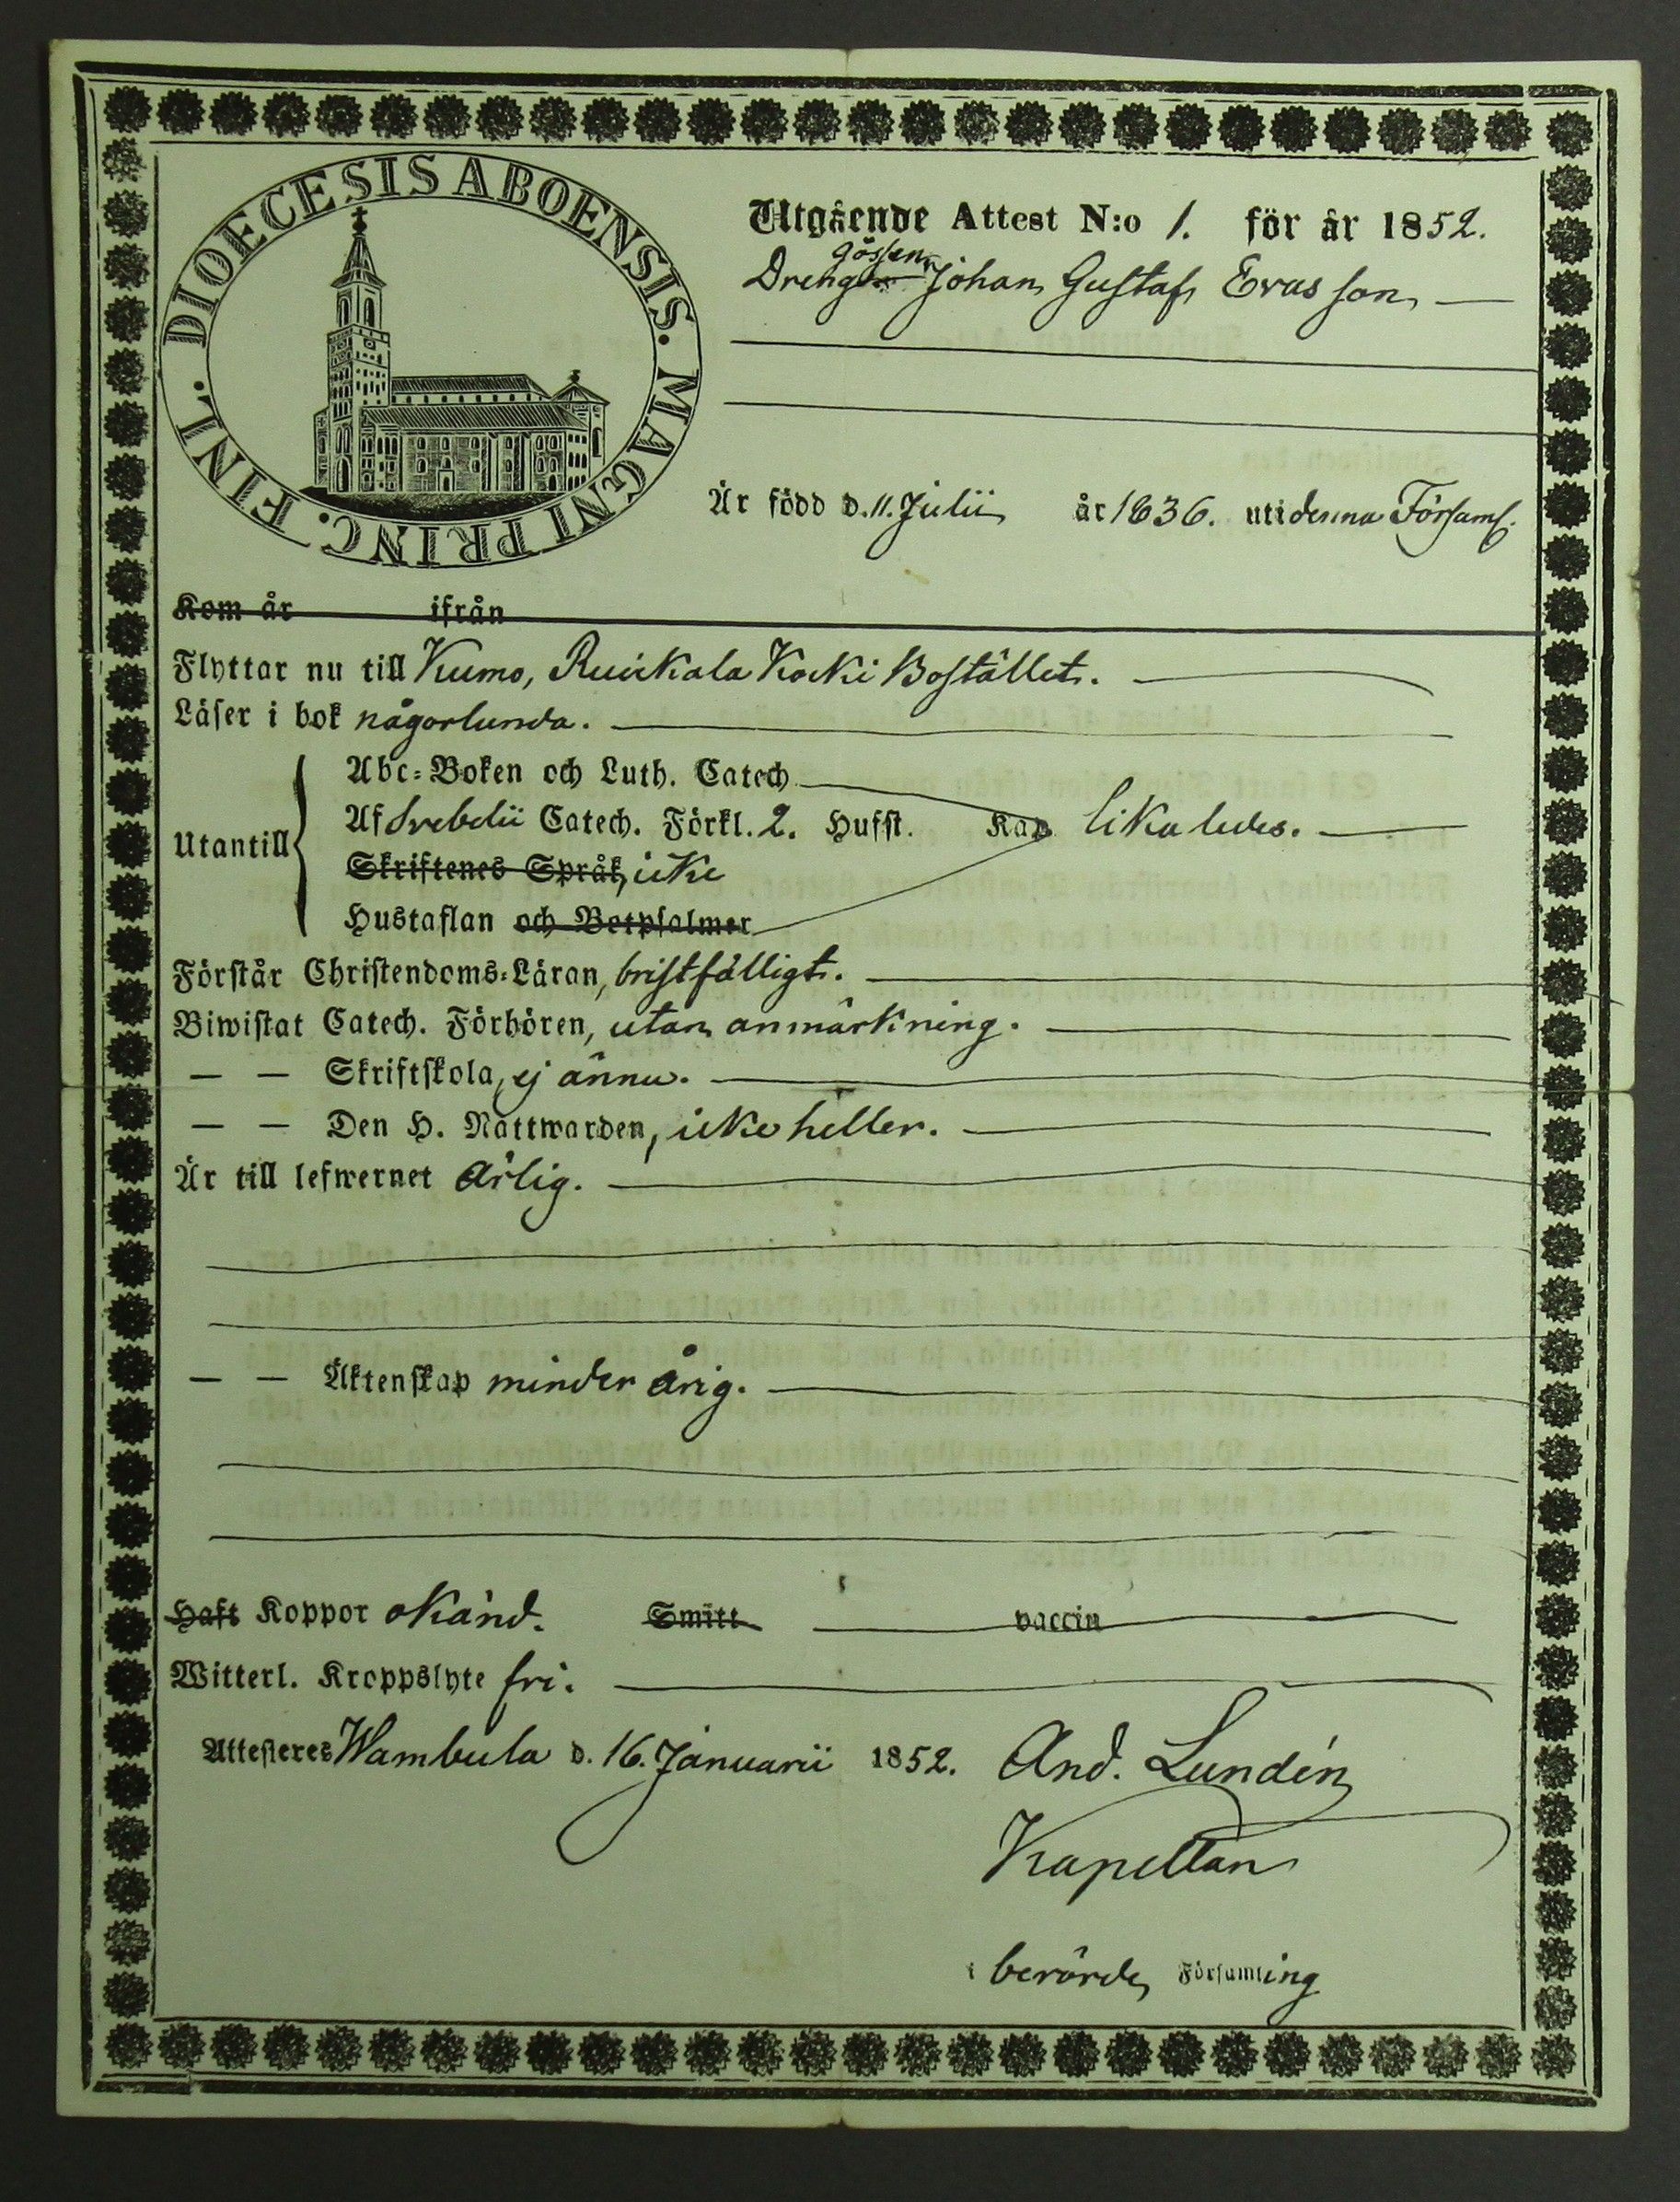 DIOECESIS ABOENSIS. MAGNI PRINC. FINL.
Utgående Attest N:o 1. för år 1852.
gössen
Dreng Johan Gustaf Evasson,
Är född d. 11. Julii år 1836. uti denna Församl.
Kom år ifrån
Flyttar nu till Kumo, Ruskala Kocki Bostället.
Läser i bok någorlunda.
Abc-Boken och Luth. Catech
Utantill
Af Svebelii Catech. Förkl. 2. Hufst. Kap likaledes.
Skriftenes Språk, icke
Hustaflan och Botpsalmer
Förstår Christendoms-Läran, bristfälligt.
Biwistat Catech. Förhören, utan anmärkning.
— — Skriftskola, ej ännu.
— — Den H. Nattwarden, icke heller.
Är till lefwernet ärlig.
— — Äktenskap minderårig.
Haft Koppor okänd. Smitt vaccin
Witterl. Kroppslyte fri.
Attesteres Wambula d. 16. Januarii 1852. And. Lundén
Kapellan
i berörde Församling